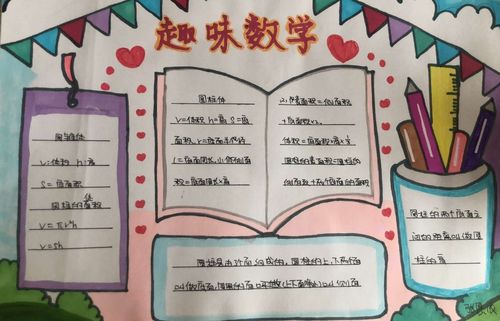 趣味数学
圆柱体
V=体积 h=高 S=底
面积 r=底面半径
C=底面周长 ⑴侧面
积=底面周长×高
2.表面积=侧面积
+底面积×2
体积=底面积×高
圆柱的表面积=圆柱的
侧面积+两个底面的面积
圆柱体
V:体积 h:高
S=底面积
圆柱的体积
V=πr²h
V=Sh
圆柱的两个底面之
间的距离叫做圆
柱的高
圆柱是由3个面组成的，圆柱的上、下两个面
叫做底面